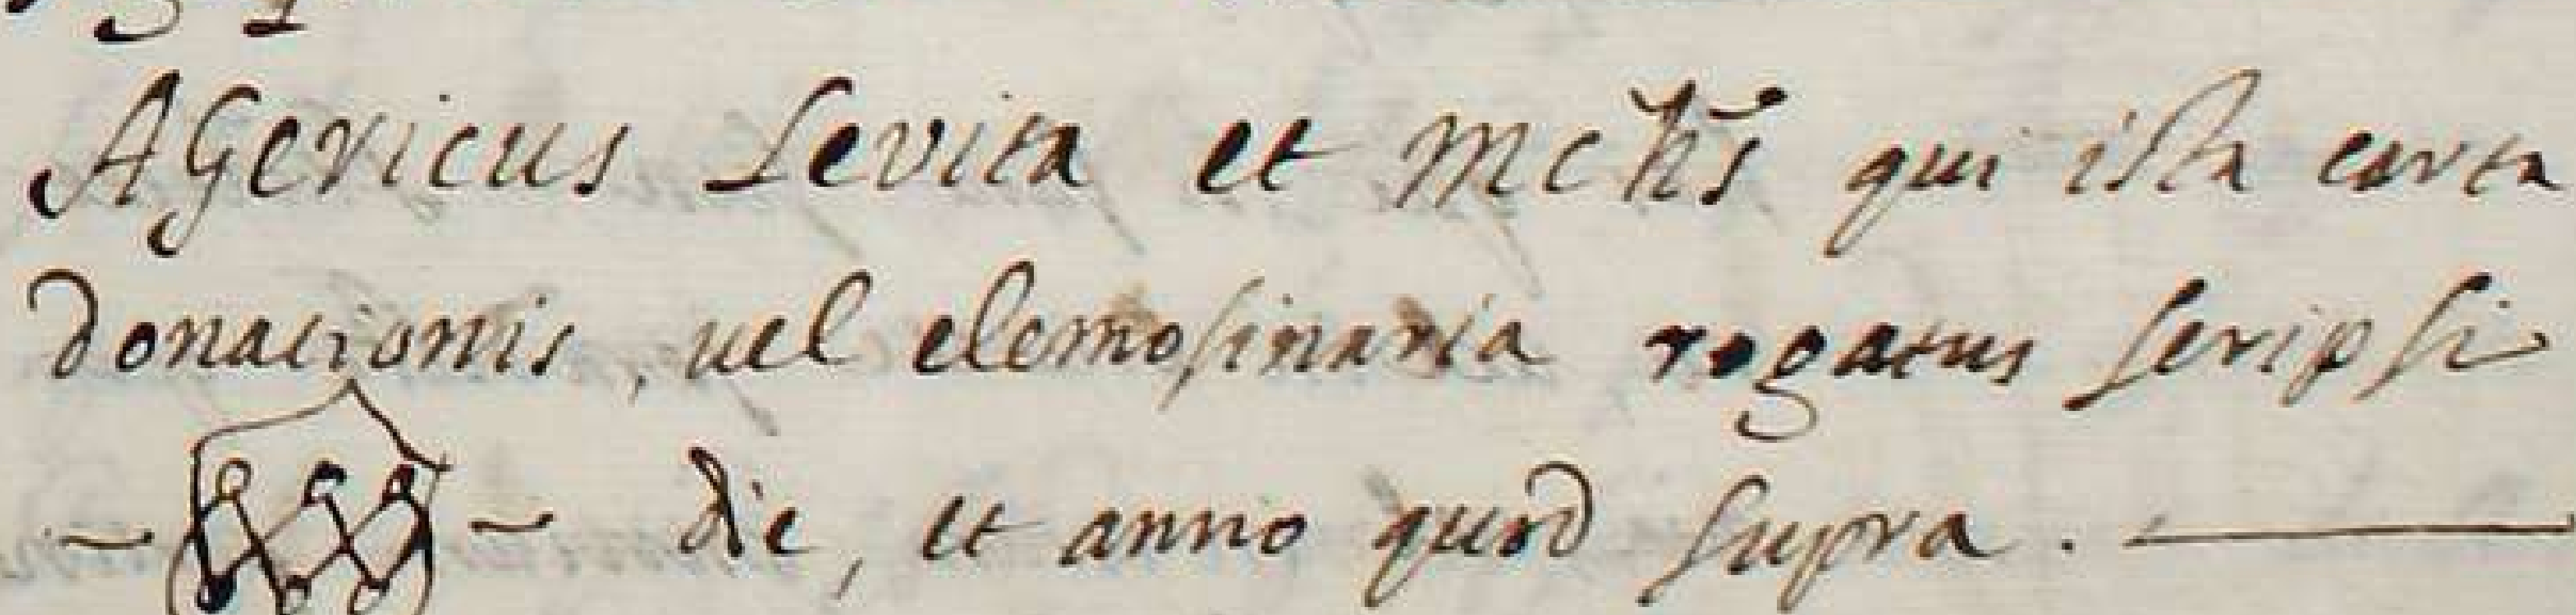 Agericus Levita et mchs qui ista carta
donationis, uel elemosinaria rogatus scripsi
die, et anno quod supra.